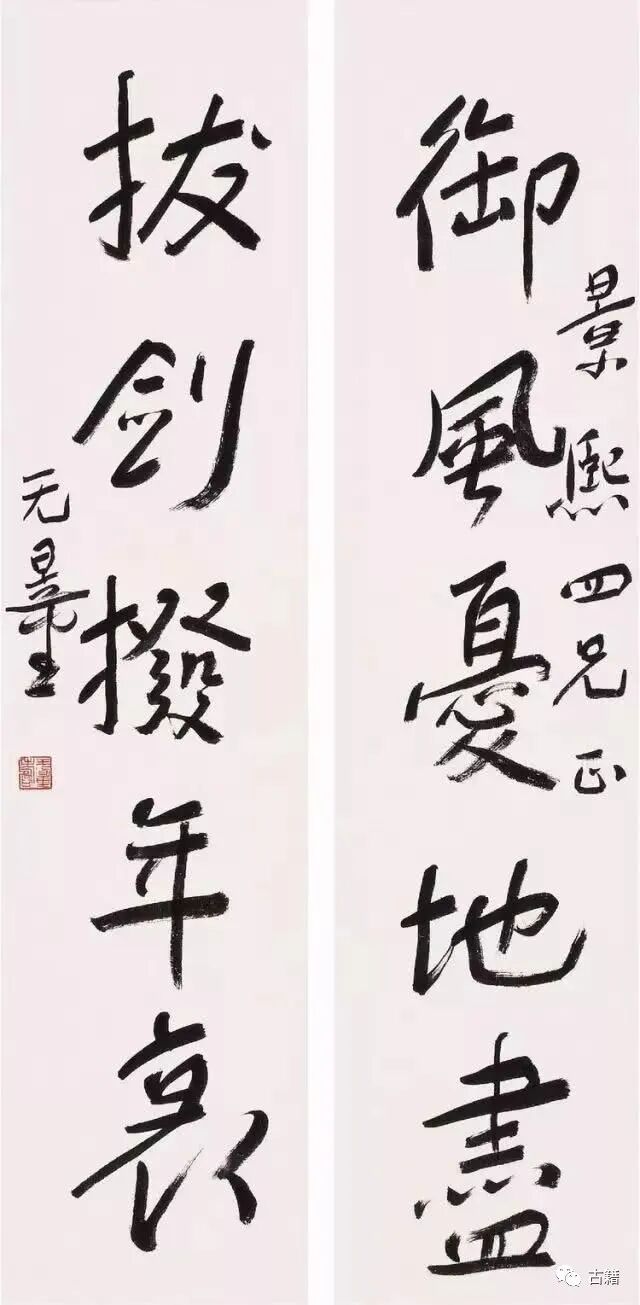 景熙四兄正
御風憂地盡
拔劍撥年衰
无量
古籍